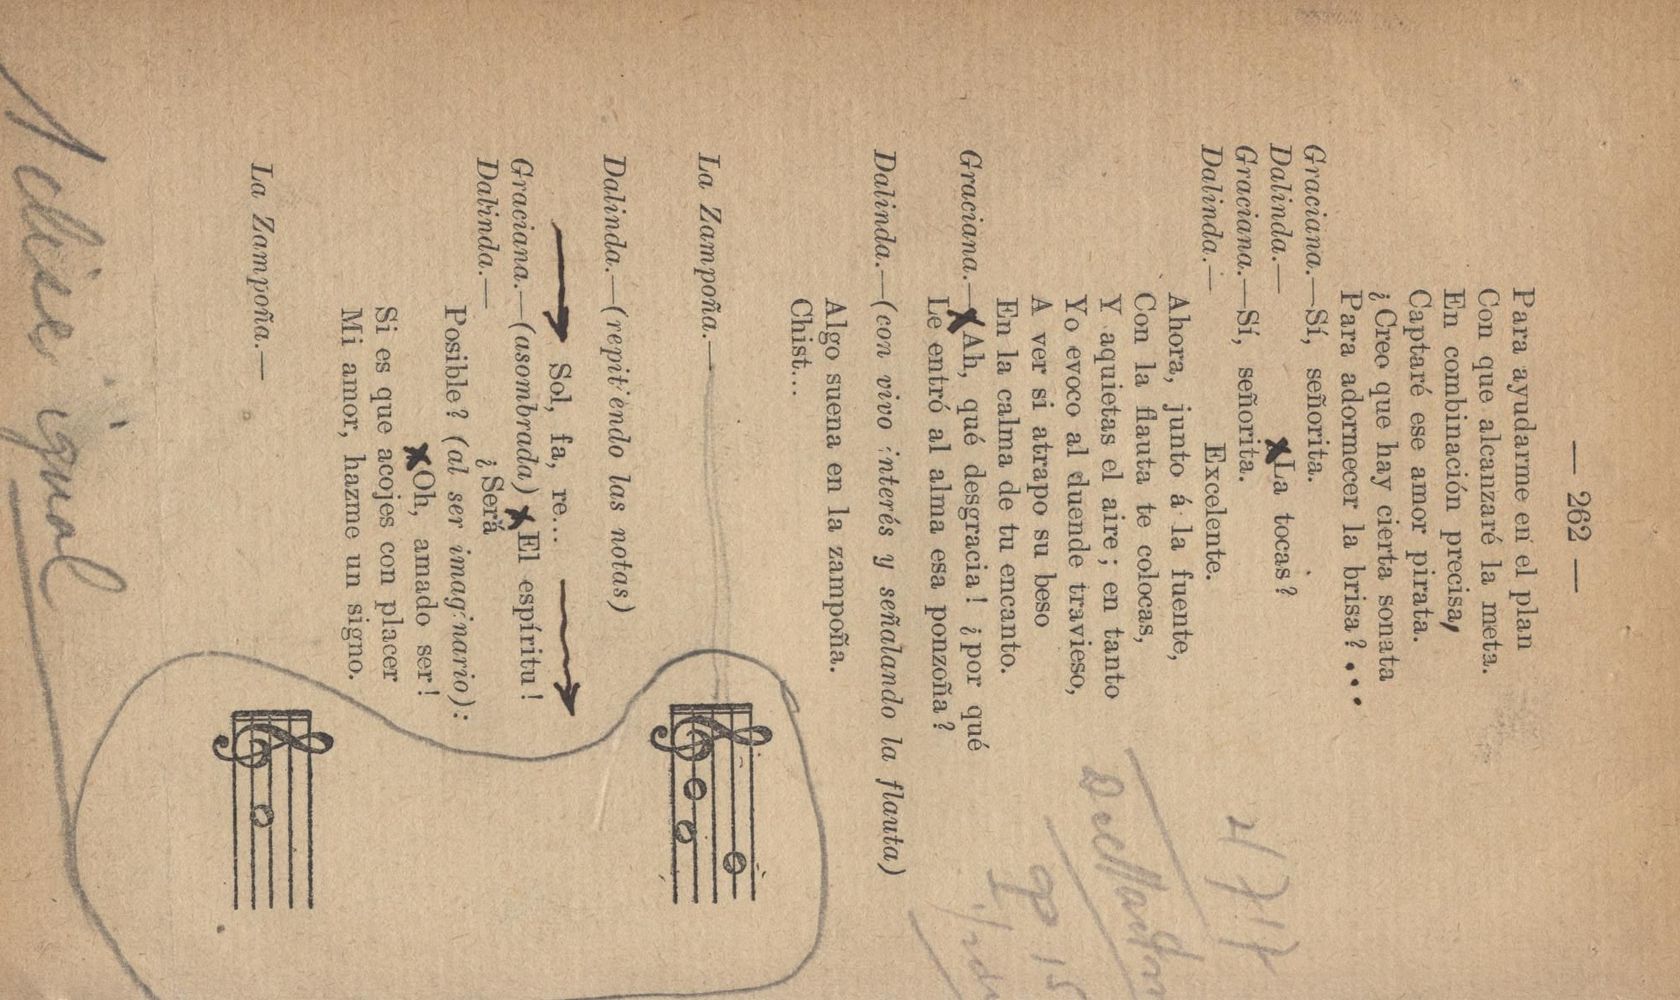 — 262 —
Para ayudarme en el plan
Con que alcanzaré la meta.
En combinación precisa,
Captaré ese amor pirata.
¿Creo que hay cierta sonata
Para adormecer la brisa?...
Graciana.—Sí, señorita.
Dalinda.— La tocas?
Graciana.—Sí, señorita.
Dalinda.— Excelente.
Ahora, junto á la fuente,
Con la flauta te colocas,
Y aquietas el aire; en tanto
Yo evoco al duende travieso,
A ver si atrapo su beso
En la calma de tu encanto.
Graciana.—Ah, qué desgracia! ¿por qué
Le entró al alma esa ponzoña?
Dalinda.—(con vivo interés y señalando la flauta)
Algo suena en la zampoña.
Chist...
La Zampoña.—
Dalinda.—(repitiendo las notas)
Sol, fa, re...
Graciana.—(asombrada) El espíritu!
Dalinda.— ¿Será
Posible? (al ser imaginario):
Oh, amado ser!
Si es que acojes con placer
Mi amor, hazme un signo.
La Zampoña.—
1 clise igual